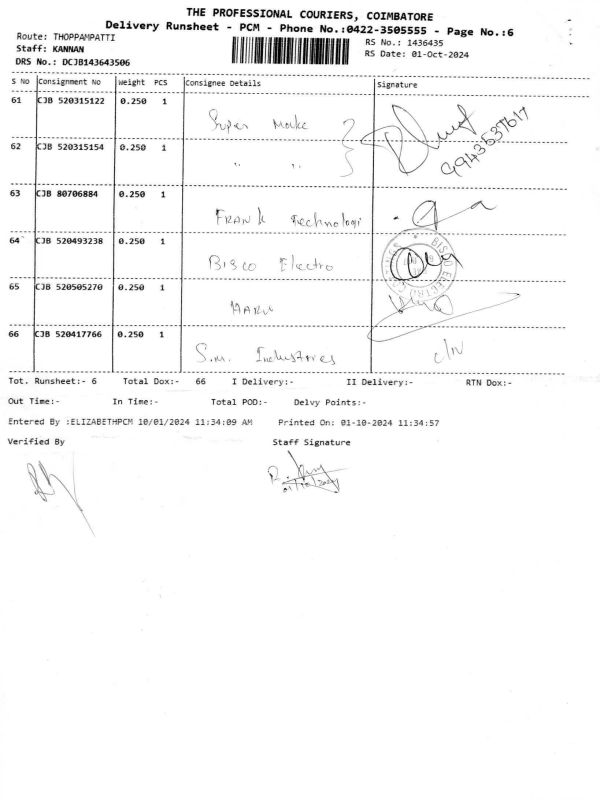 THE PROFESSIONAL COURIERS, COIMBATORE
Delivery Runsheet - PCM - Phone No.:0422-3505555 - Page No.:6
Route: THOPPAMPATTI RS No.: 1436435
Staff: KANNAN RS Date: 01-Oct-2024
DRS No.: DCJB143643506
S No Consignment No Weight PCS Consignee Details Signature
61 CJB 520315122 0.250 1 Super Make
62 CJB 520315154 0.250 1 " "
63 CJB 80706884 0.250 1 FRANK Technologi
64 CJB 520493238 0.250 1 BISCO Electro
65 CJB 520505270 0.250 1
66 CJB 520417766 0.250 1 S.m. Industares
Tot. Runsheet:- 6 Total Dox:- 66 I Delivery:- II Delivery:- RTN Dox:-
Out Time:- In Time:- Total POD:- Delvy Points:-
Entered By :ELIZABETHPCM 10/01/2024 11:34:09 AM Printed On: 01-10-2024 11:34:57
Verified By Staff Signature